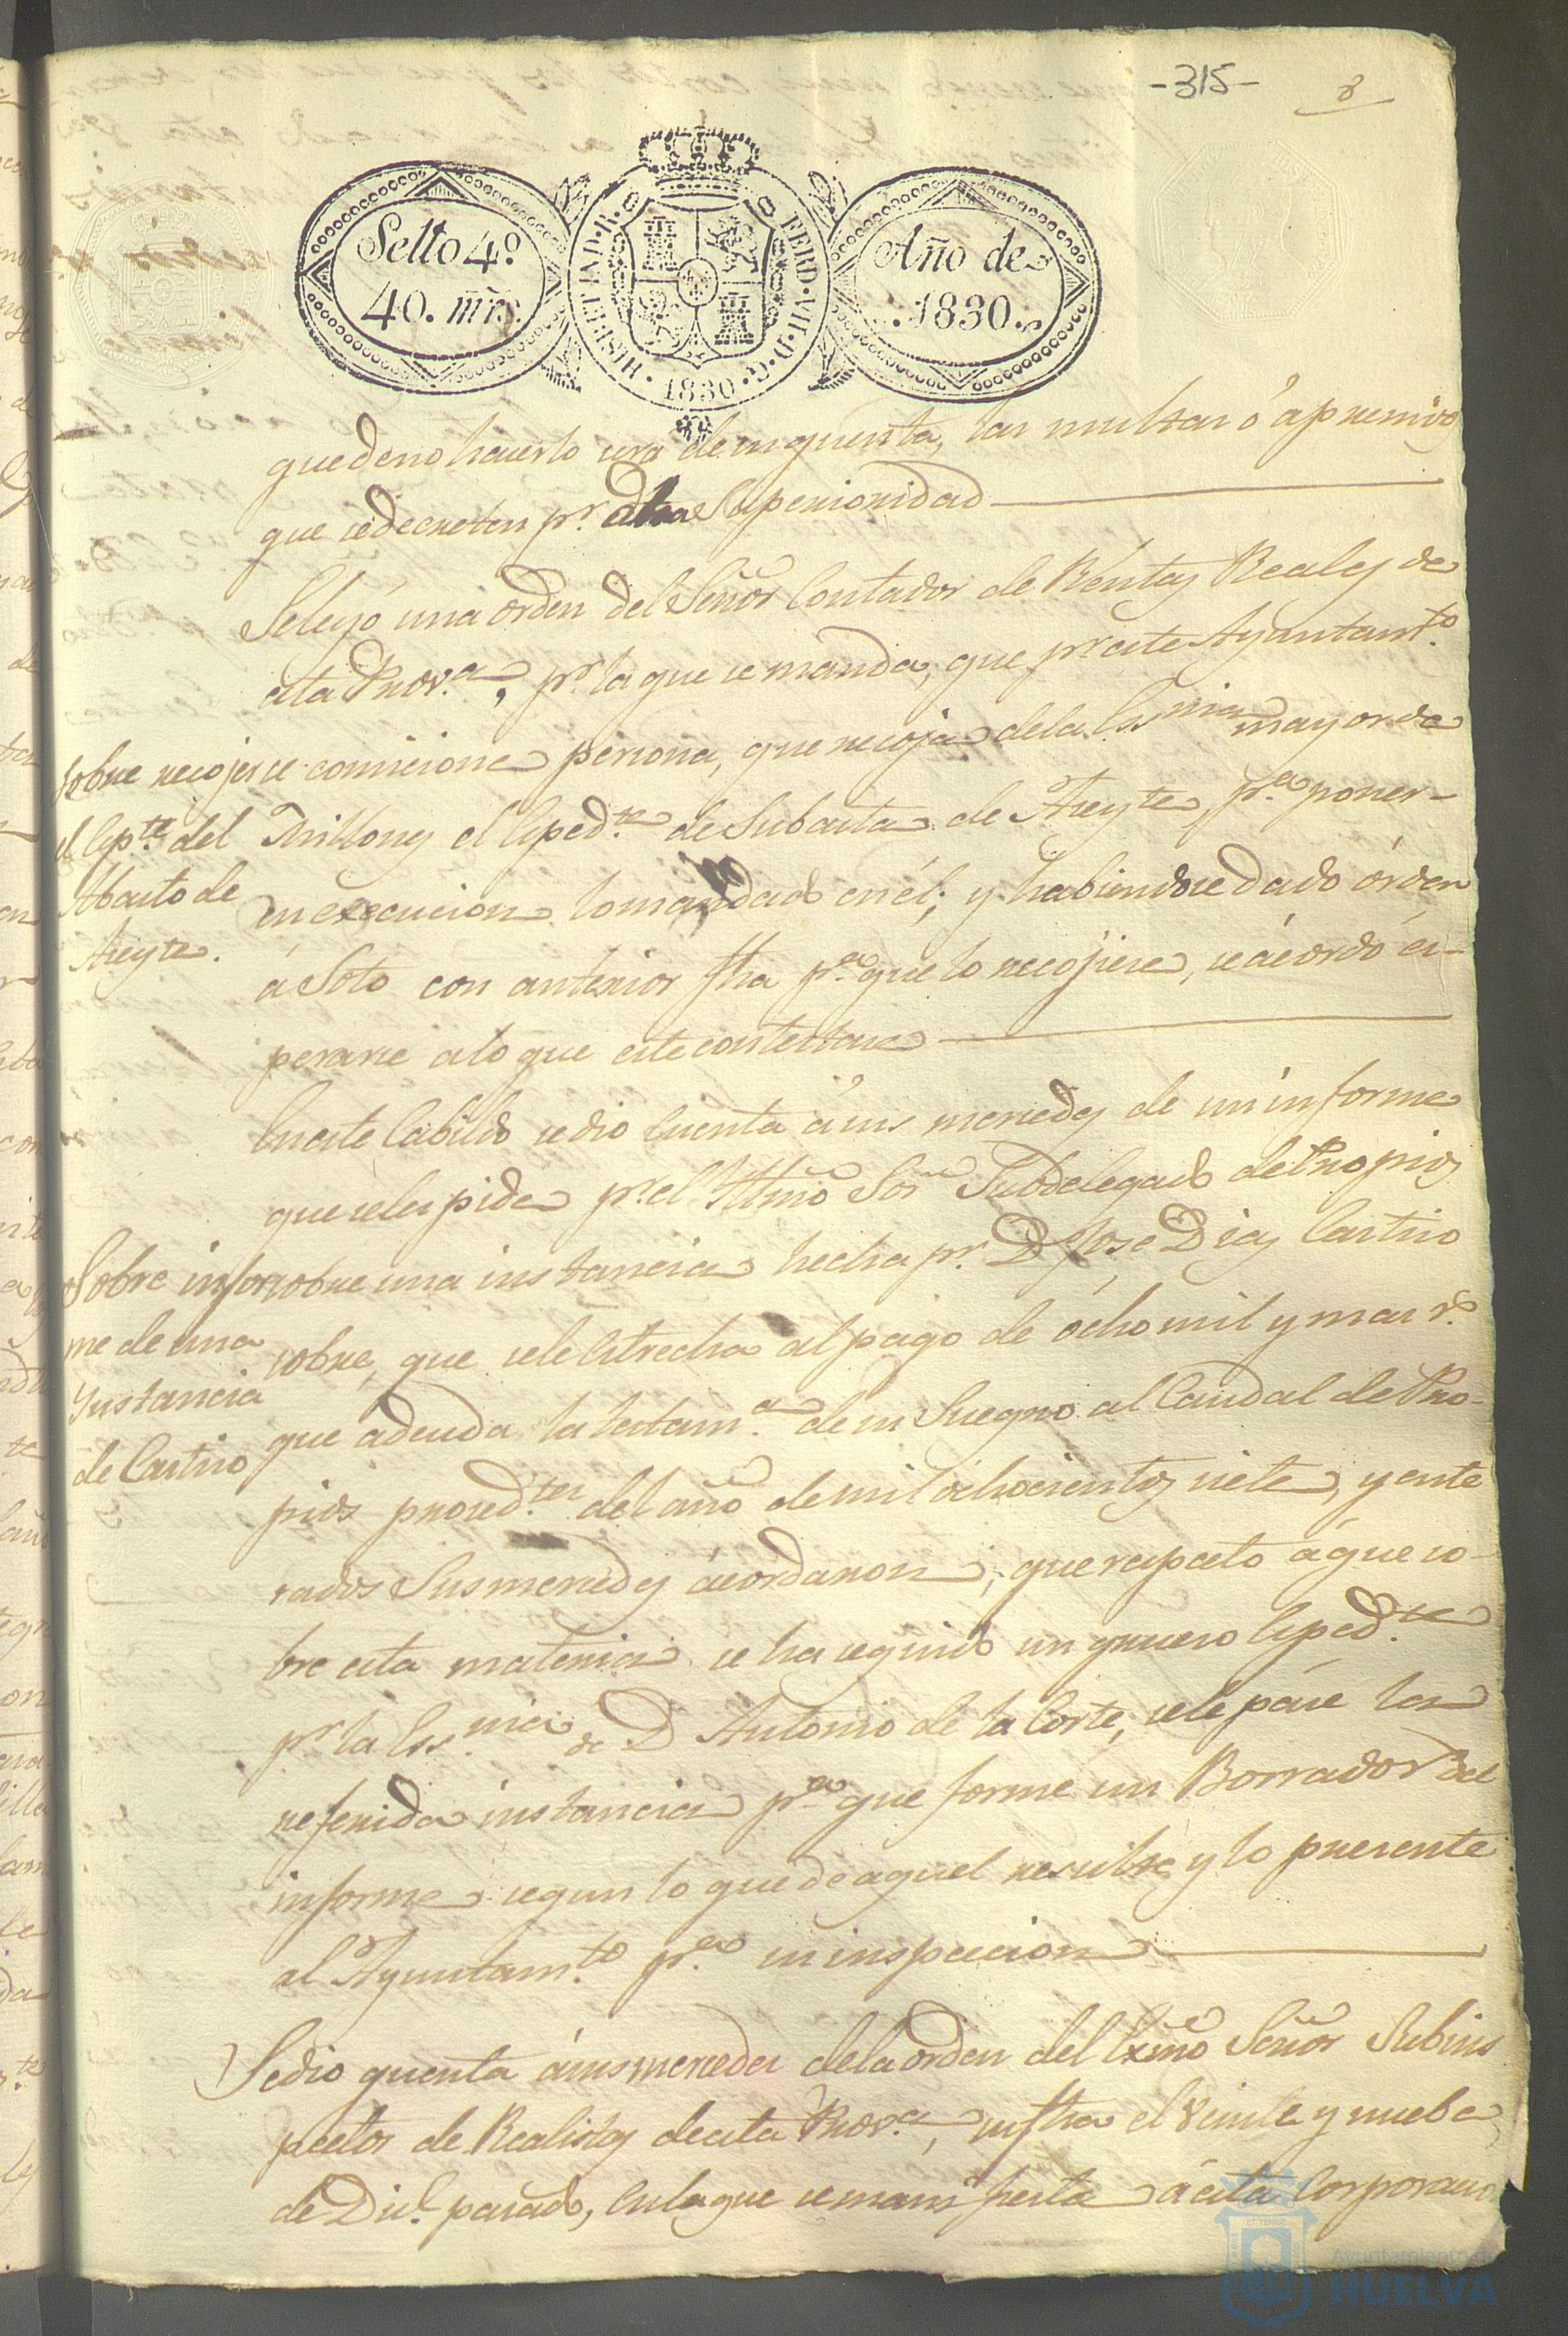 -315-
8
Sello 4º
40. mrs.
HISPETIAD.R. FERD.VII.D.G. 1830.
Año de
1830.
que de no hacerlo sera de su quenta, las multas ó apremios
que se decreten pr. dha Superioridad
Se leyó una orden del Señor Contador de Rentas Reales de
esta Prov.a, pr. la que se manda, que pr. este Ayuntamto.
Sobre recojerse
el Expte. del
Abasto de
Azeyte.
comicione persona, que recoja de la Essnia mayor de
Millones el Exped.te de Subasta de Azeyte, pr.a poner-
en execucion lo mandado en él; y habiendose dado órden
á Soto con anterior fha pr.a que lo recojiese, se acordó es-
perarse a lo que este contestase
En este Cabildo se dio Cuenta á sus mercedes de un informe
que se les pide pr. el Yltmo Sor. Subdelegado de Propios
Sobre infor
me de una
Ynstancia
de Castro
sobre una instancia hecha pr. D. Jose Diaz Castro
sobre, que se le Estrecha al pago de ocho mil y mas rs.
que adeuda la testam.a de su Suegro al Caudal de Pro-
pios proced.tes del año de mil ochocientos siete, y ente
rados Sus mercedes acordaron, que respecto á que so-
bre esta materia se ha seguido un grueso Exped.te
pr. la Ess.nia de D. Antonio de la Corte, se le pase la
referida instancia pr.a que forme un Borrador del
informe segun lo que de aquel resulte, y lo presente
al Ayuntam.to pr.a su inspeccion
Se dio quenta á sus mercedes de la orden del Exmo Señor Subins
pector de Realistas de esta Prov.a, su fha el veinte y nuebe
de Dic.e pasado, en la que se manifiesta á esta Corporacio
Ayuntamiento de
HUELVA